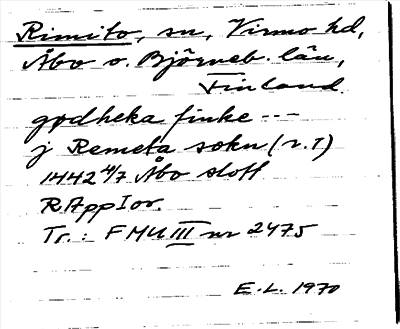 Rimito, sn, Virmo hd,
Åbo o. Björneb. län,
Finland.
godheka finke ---
j Remeta sokn (r. 1)
1442 4/7 Åbo slott
RAppIor.
Tr.: FMU III nr 2475
E.L. 1970